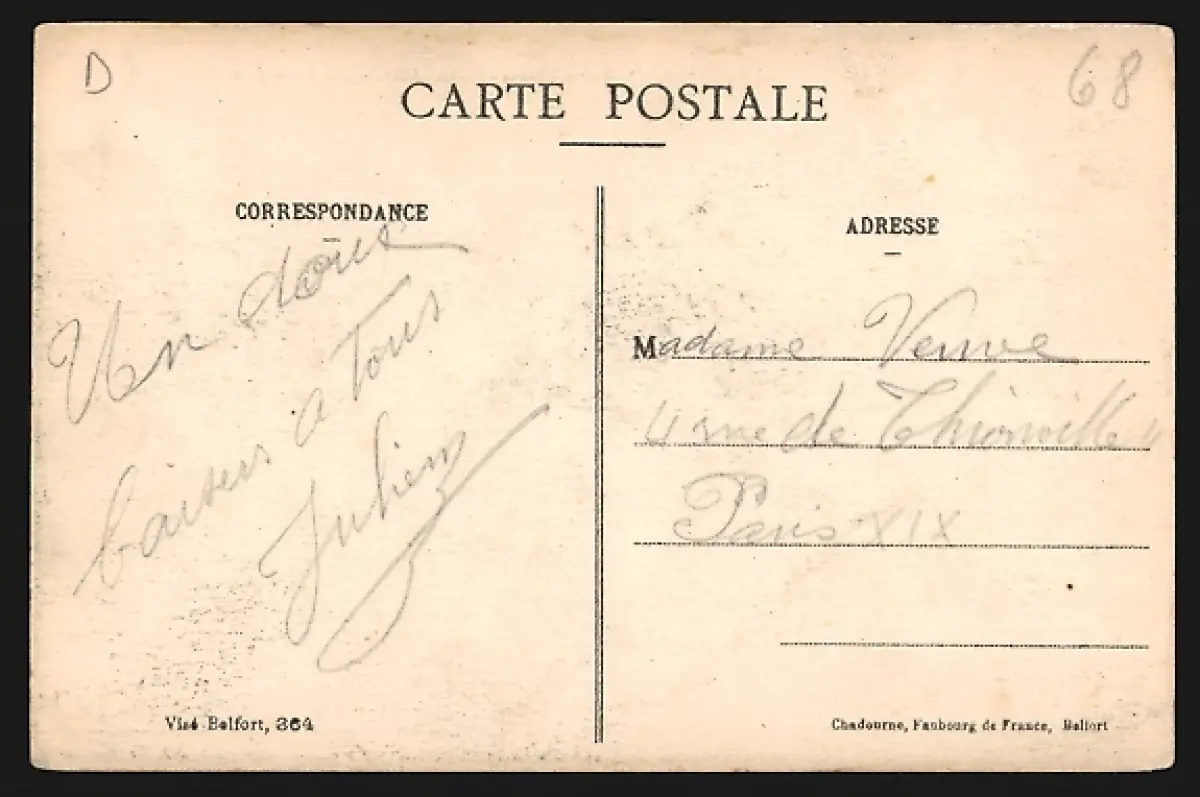 D
68
CARTE POSTALE
CORRESPONDANCE
Un doux
baisers a Tous
Julien
Visé Belfort, 364
ADRESSE
Madame
4 rue de Thionville 4
Paris XIX
Chadourne, Faubourg de France, Belfort